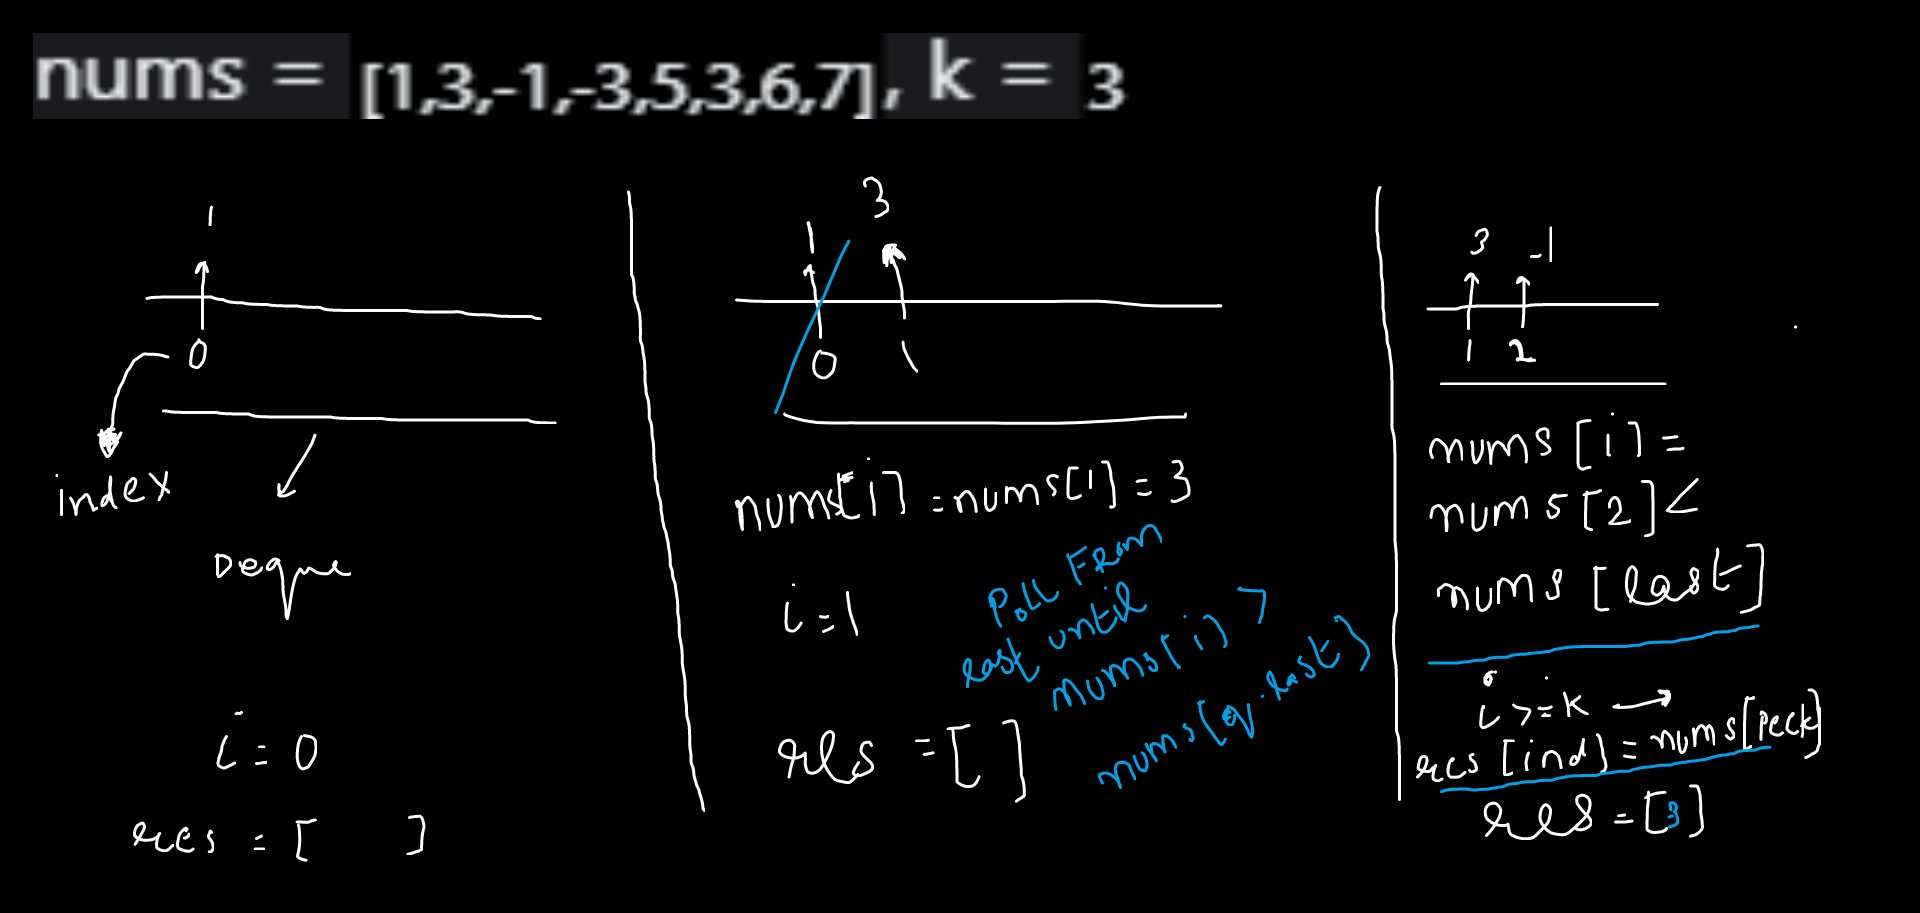 nums = [1,3,-1,-3,5,3,6,7], k = 3
1
0
index
Deque
i = 0
res = [ ]
1 3
0 1
nums[i] = nums[1] = 3
i = 1
Poll From
last until
nums[i] >
nums[q.last]
res = [ ]
3 -1
1 2
nums[i] =
nums[2] <
nums[last]
i >= k →
res[ind] = nums[peek]
res = [3]